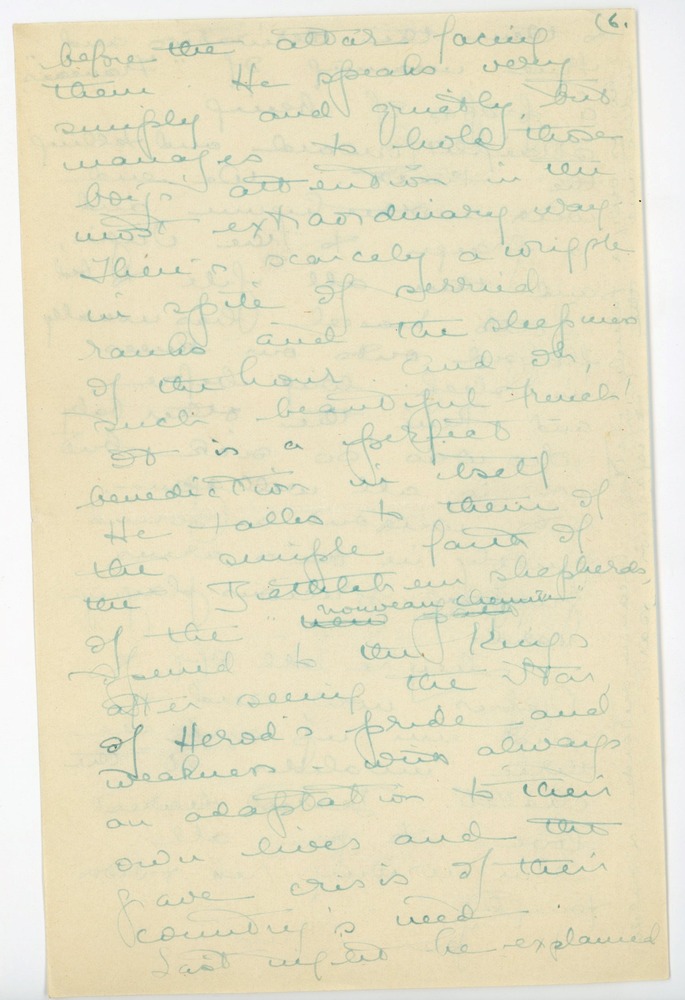 (6.
before the altar facing
them He speaks very
simply and quietly, but
manages to hold those
boys attention in the
most extraordinary way.
There's scarcely a wriggle
in spite of serried
ranks and the sleepiness
of the hour. And Oh,
such beautiful French!
It is a perfect
benediction in itself
He talks to them of
the simple faith of
the Bethlehem shepherds,
of the "nouveau chemin"
opened to the Kings
after seeing the Star,
of Herod's pride and
weakness - with always
an adaptation to their
own lives and the
grave crisis of their
country's need.
Last night he explained